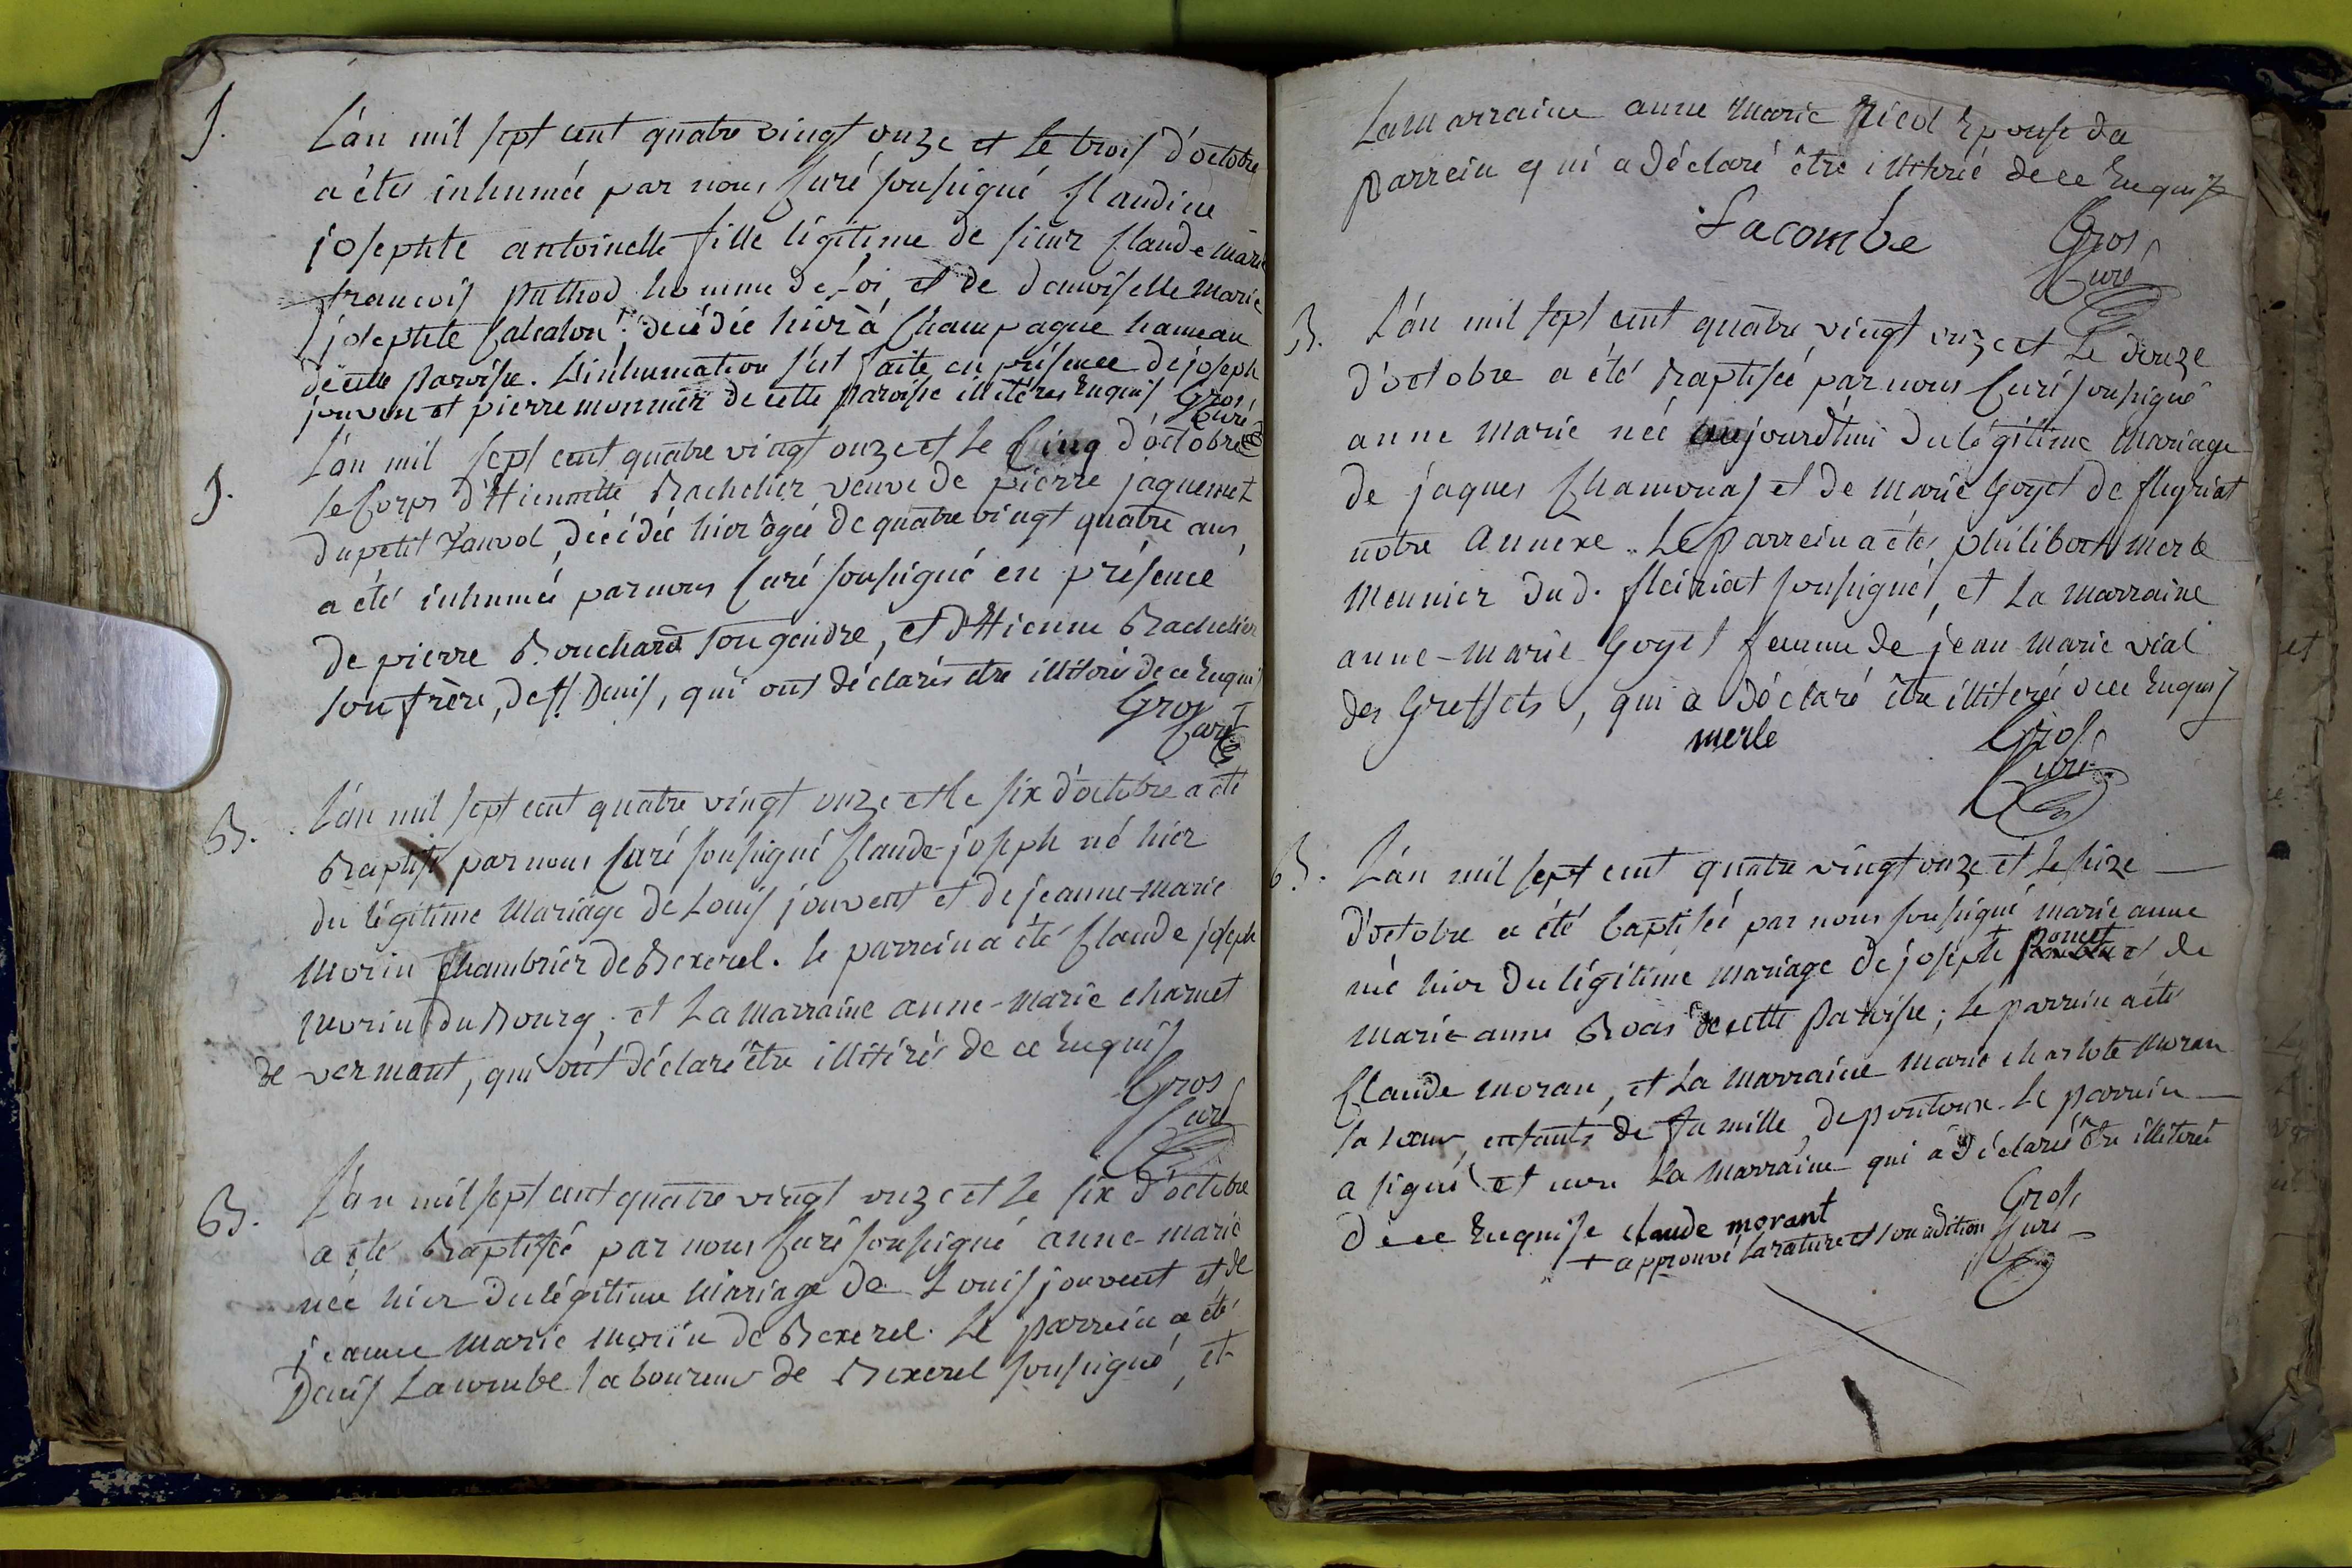 J.
L'an mil sept cent quatre vingt onze et le trois d'octobre
a étés inhumée par nous Curé soussigné Claudine
josephte antoinette fille légitime de sieur Claude marie
francois puthod homme de loi et de demoiselle Marie
josephte décédée hier à Champagne hameau
de cette paroisse. L'inhumation s'est faite en présence de joseph
jouvent et pierre monnier de cette paroisse illitérés Enquis Gros
Curé
J.
L'an mil sept cent quatre vingt onze et le Cinq d'octobre
le Corps d'Etiennette Bachelier veuve de pierre jaquemet
du petit décédée hier âgée de quatre vingt quatre ans
a été inhumée par nous Curé soussigné en présence
de pierre Bouchard son gendre, et d'Etienne Bachelier
son frère, de St. Denis, qui ont déclarés etre illitérés de ce Enquis
Gros
Curé
B.
L'an mil sept cent quatre vingt onze et le six d'octobre a été
Baptisé par nous Curé soussigné Claude-joseph né hier
du légitime Mariage de Louis jouvent et de jeanne-marie
Morin Chambrier de Bexerel. le parrein a été Claude joseph
Morin du Bourg, et La Marraine anne-Marie charnet
de vermant, qui ont déclaré être illitérés de ce Enquis
Gros
Curé
B.
L'an mil sept cent quatre vingt onze et le six d'octobre
a été Baptisée par nous Curé soussigné anne-marie
née hier du légitime Mariage de Louis jouvent et de
jeanne Marie Morin de Bexerel. Le parrein a été
Denis Lacombe laboureur de Bexerel soussigné, et
La Marraine anne Marie Epouse du
parrein qui a déclaré être illiterée de ce Enquise
Lacombe
Gros
Curé
B.
L'an mil sept cent quatre vingt onze et le douze
d'octobre a été Baptisée par nous Curé soussigné
anne Marie née aujourd'hui du légitime Mariage
de jaques Chamonas et de Marie Goyet de fleyriat
notre Annexe. Le parrein a étés philibert Merle
Meunier dud. fleiriat soussigné, et La Marraine
anne-Marie Goyet femme de jean Marie vial
des Greffets, qui a déclaré être illiterée de ce Enquis
merle
Gros
Curé
B.
L'an mil sept cent quatre vingt onze et le seize
d'octobre a été baptisée par nous soussigné marie anne
née hier du légitime Mariage de joseph + ponet et de
Marie-anne Bois de cette Paroisse; le parrein a été
Claude Moran, et La Marraine Marie charlote Moran
sa soeur, enfants de famille de pontoux. Le parrein
a signé et non La Marraine qui a déclaré être illiterée
de ce Enquise claude morant
Gros
Curé
+ approuvé la rature et son adition